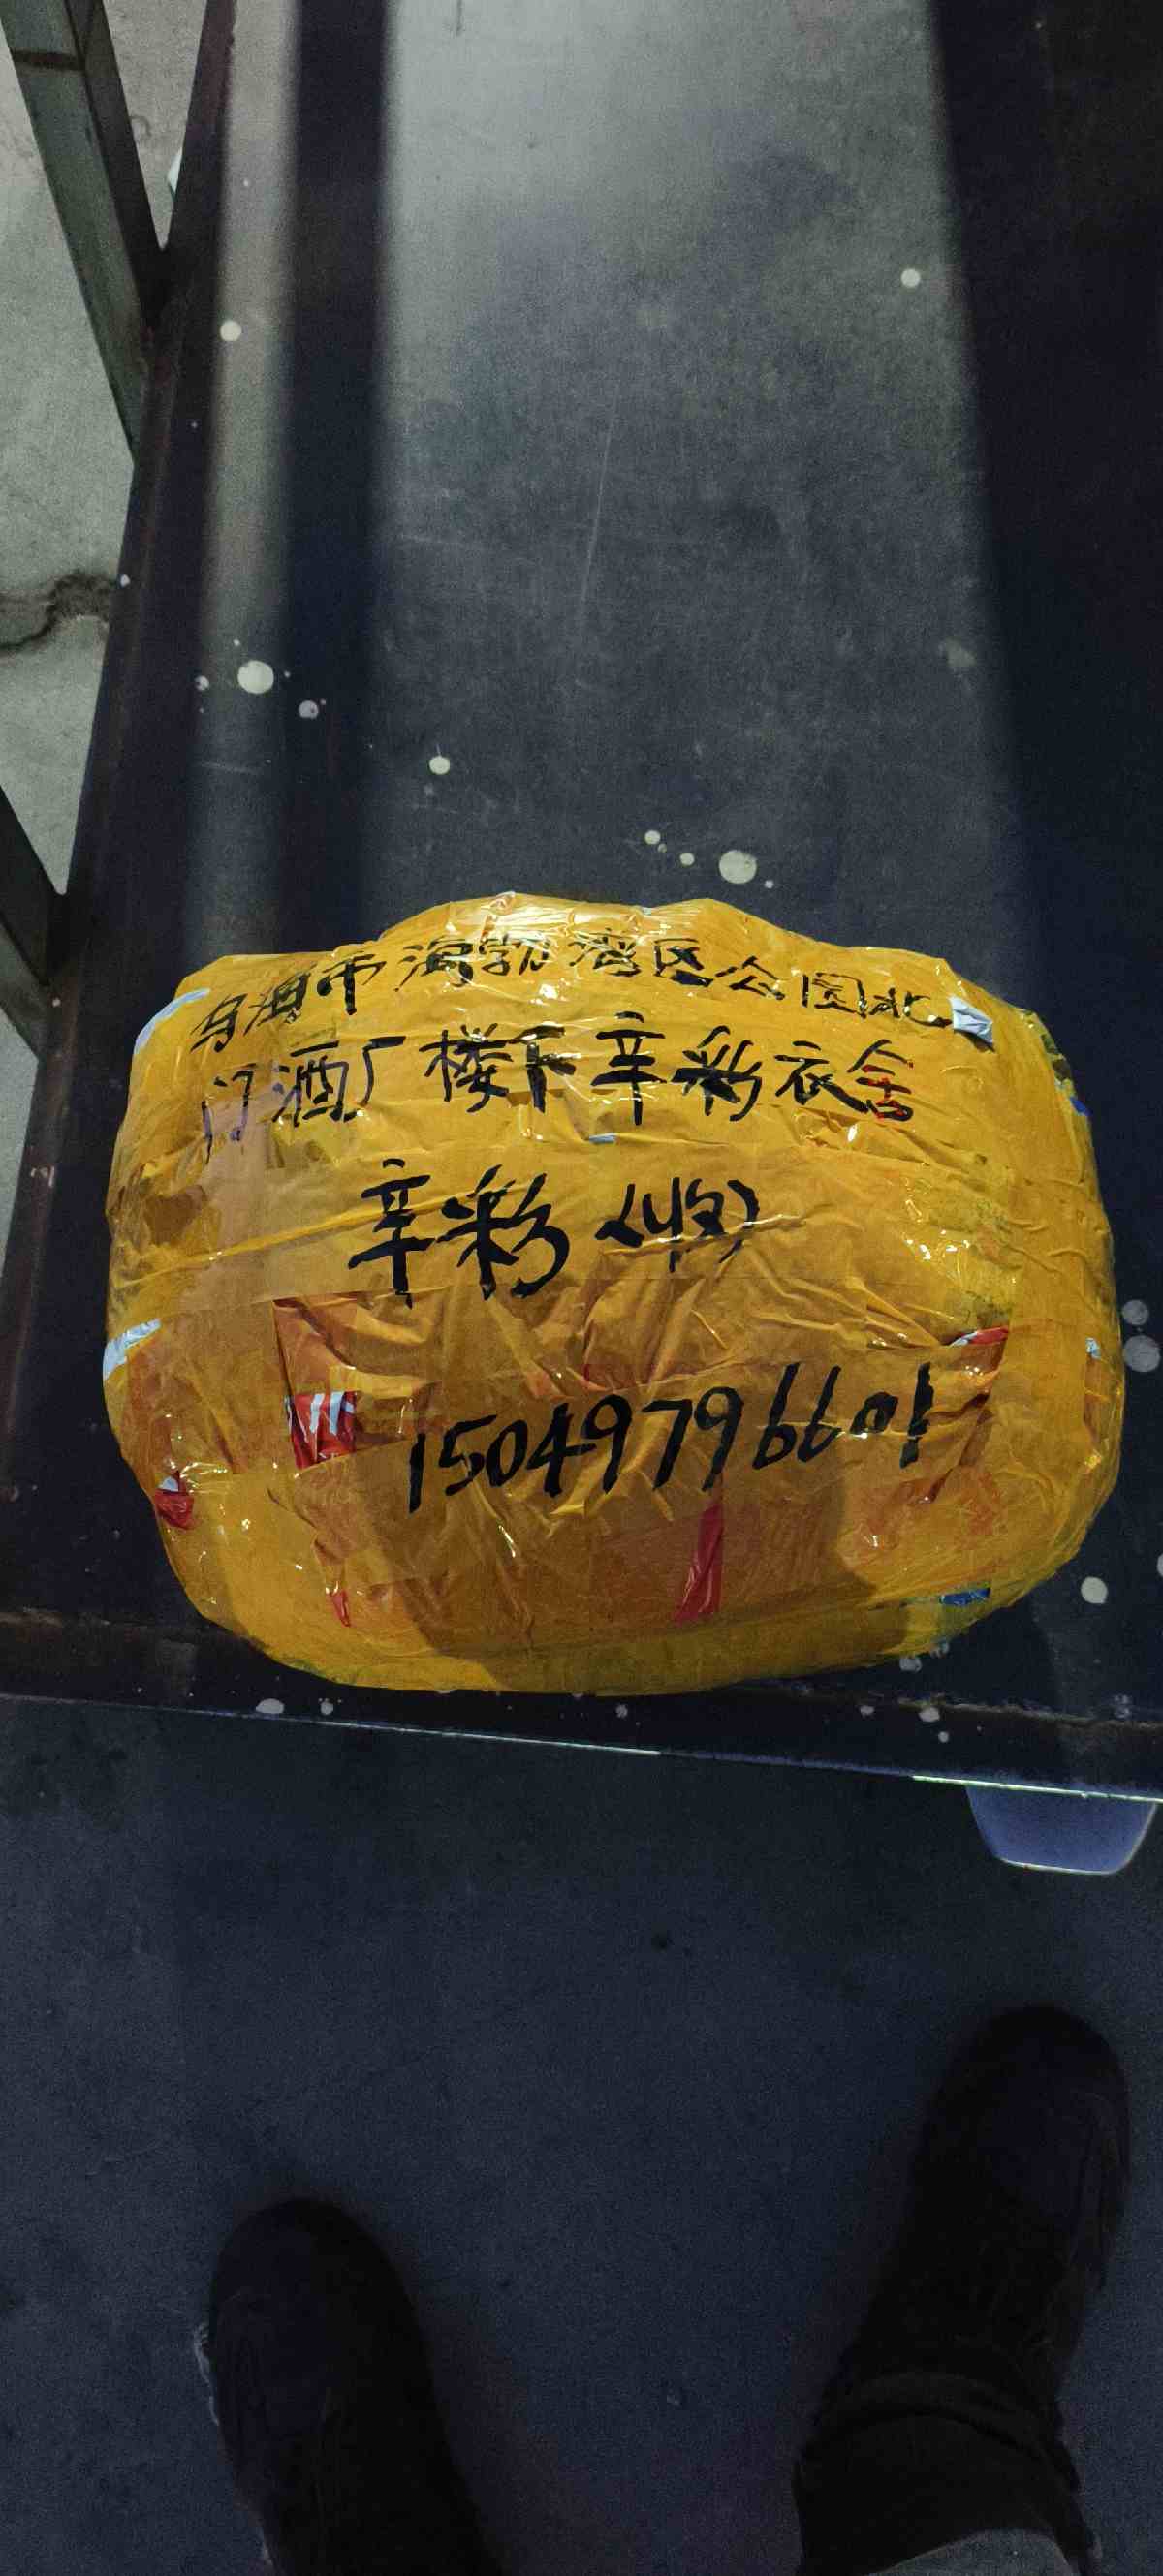 乌海市海勃湾区公园北
门酒厂楼下辛彩衣舍
辛彩（收）
15049796601